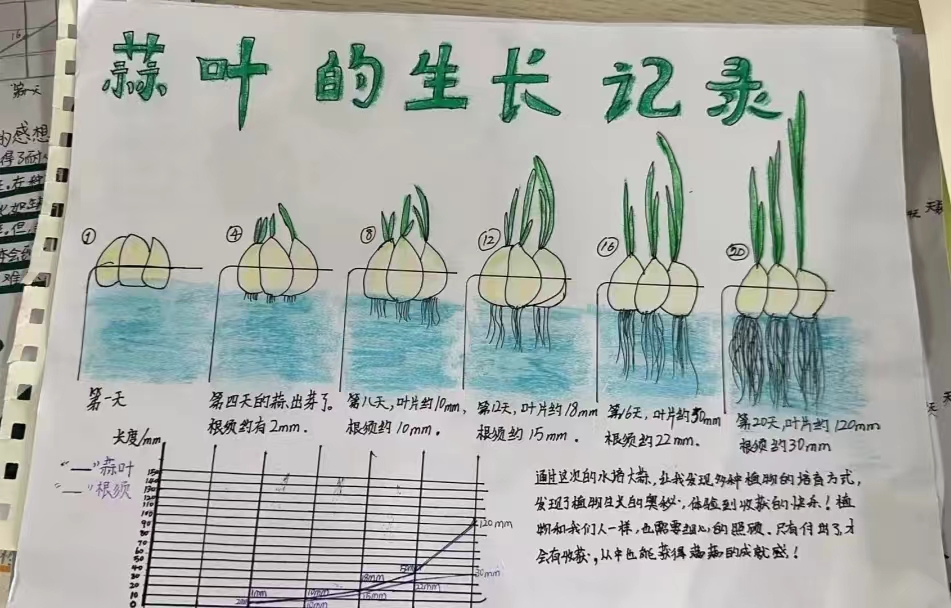 蒜叶的生长记录
①
④
⑧
⑫
⑯
⑳
第一天
第四天的蒜,出芽了。
根须约有2mm.
第八天,叶片约10mm,
根须约10mm。
第12天,叶片约18mm
根须约15mm.
第16天,叶片约50mm
根须约22mm.
第20天,叶片约120mm
根须约30mm
长度/mm
"—"蒜叶
"—"根须
120mm
30mm
22mm
18mm
15mm
10mm
100
90
80
70
60
50
40
30
20
10
0
通过这次的水培大蒜,让我发现多种植物的培育方式,
发现了植物生长的奥秘,体验到收获的快乐!植
物和我们人一样,也需要细心的照顾。只有付出了,才
会有收获,从中也能获得满满的成就感!
第一天
的感想